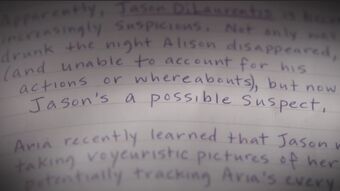 Apparently, Jason DiLaurentis is
increasingly suspicious. Not only was
drunk the night Alison disappeared,
(and unable to account for his
actions or whereabouts), but now
Jason's a possible suspect.
Aria recently learned that Jason
taking voyeuristic pictures of her
potentially tracking Aria's every